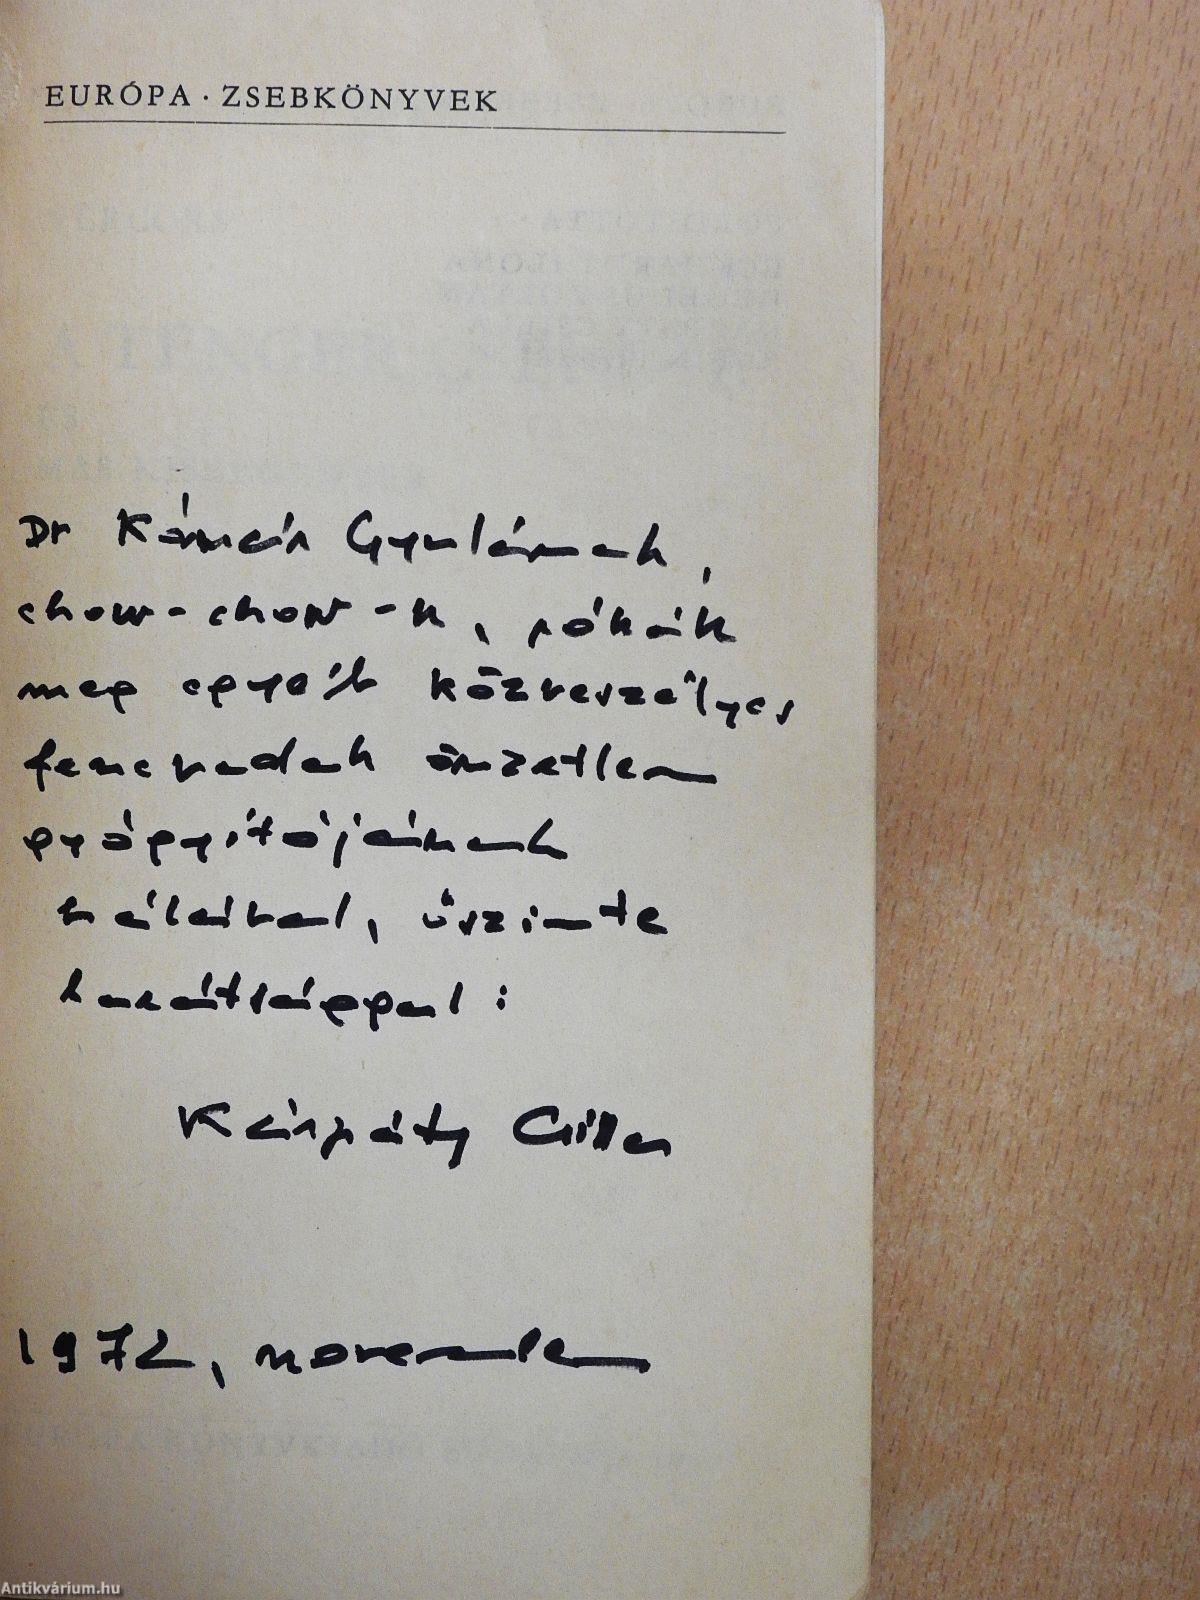 EURÓPA · ZSEBKÖNYVEK
Dr Gyulának,
chow-chow-k, rókák
meg egyéb közveszélyes
fenevadak önzetlen
gyógyítójának
hálával, őszinte
barátsággal:
Kárpáty Csilla
1972, november
Antikvárium.hu